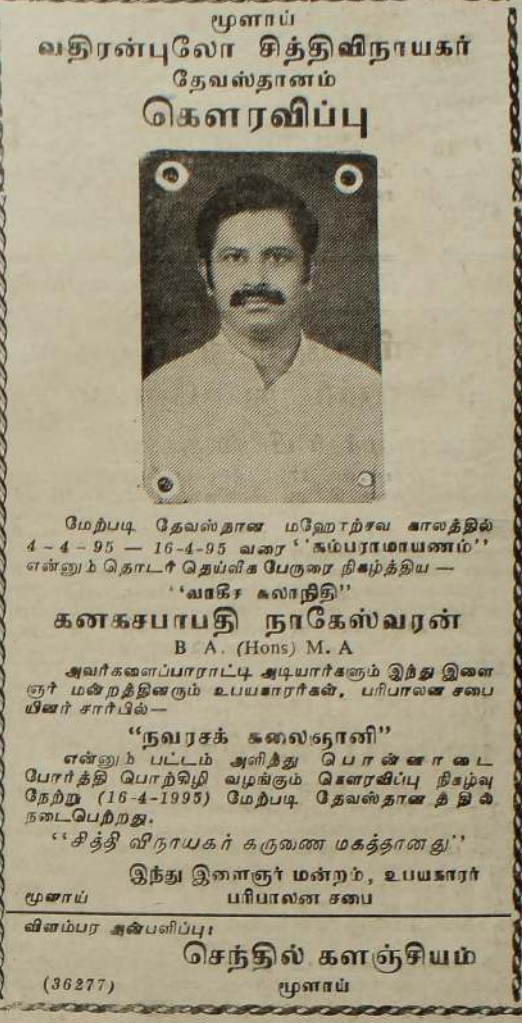 மூளாய்
வதிரன்புலோ சித்திவிநாயகர்
தேவஸ்தானம்
கௌரவிப்பு
மேற்படி தேவஸ்தான மஹோற்சவ காலத்தில்
4-4-95 — 16-4-95 வரை ''கம்பராமாயணம்''
என்னும் தொடர் தெய்வீக பேருரை நிகழ்த்திய —
''வாகீச கலாநிதி''
கனகசபாபதி நாகேஸ்வரன்
B A. (Hons) M. A
அவர்களைப்பாராட்டி அடியார்களும் இந்து இளை
ஞர் மன்றத்தினரும் உபயகாரர்கள், பரிபாலன சபை
யினர் சார்பில்—
“நவரசக் கலைஞானி”
என்னும் பட்டம் அளித்து பொன்னாடை
போர்த்தி பொற்கிழி வழங்கும் கௌரவிப்பு நிகழ்வு
நேற்று (16-4-1995) மேற்படி தேவஸ்தானத்தில்
நடைபெற்றது.
''சித்தி விநாயகர் கருணை மகத்தானது''
இந்து இளைஞர் மன்றம், உபயகாரர்
மூளாய் பரிபாலன சபை
விளம்பர அன்பளிப்பு:
செந்தில் களஞ்சியம்
(36277) மூளாய்